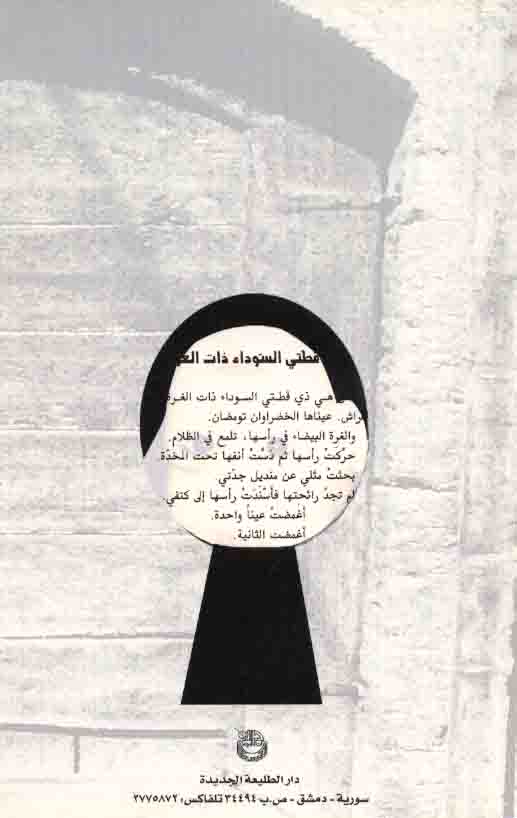 قطتي السوداء ذات
هي ذي قطتي السوداء ذات الغرة
عيناها الخضراوان تومضان.
والغرة البيضاء في رأسها، تلمع في الظلام.
حرّكتْ رأسها ثم دسّتْ أنفها تحت المخدّة.
بحثتْ مثلي عن منديل جدّتي.
لم تجدْ رائحتها فأسْنَدَتْ رأسها إلى كتفي.
أغمضتْ عيناً واحدة.
أغمضت الثانية.
دار الطليعة الجديدة
سورية - دمشق - ص.ب ٣٤٤٩٤ تلفاكس: ٢٧٧٥٨٧٢